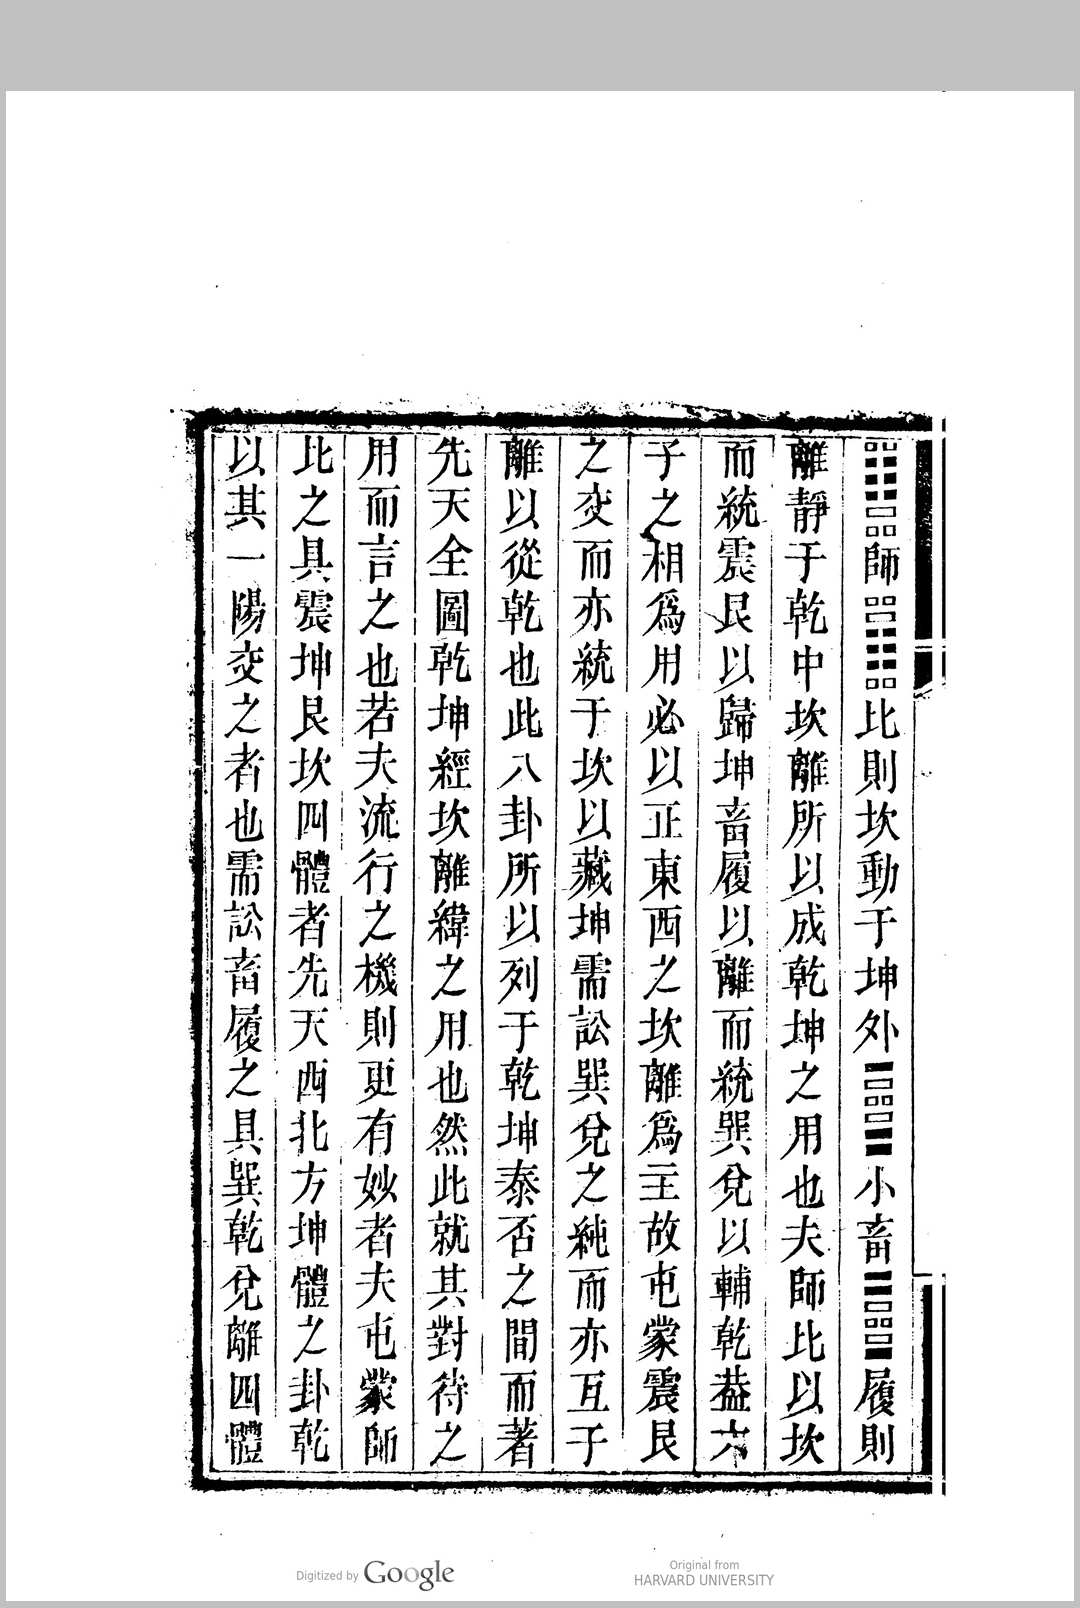 ䷆師䷇比則坎動于坤外䷈小畜䷉履則
離靜于乾中坎離所以成乾坤之用也夫師比以坎
而統震艮以歸坤畜履以離而統巽兌以輔乾葢六
子之相爲用必以正東西之坎離爲主故屯蒙震艮
之交而亦統于坎以藏坤需訟巽兌之純而亦互于
離以從乾也此八卦所以列于乾坤泰否之間而著
先天全圖乾坤經坎離緯之用也然此就其對待之
用而言之也若夫流行之機則更有妙者夫屯蒙師
比之具震坤艮坎四體者先天西北方坤體之卦乾
以其一陽交之者也需訟畜履之具巽乾兌離四體
Digitized by Google
Original from
HARVARD UNIVERSITY